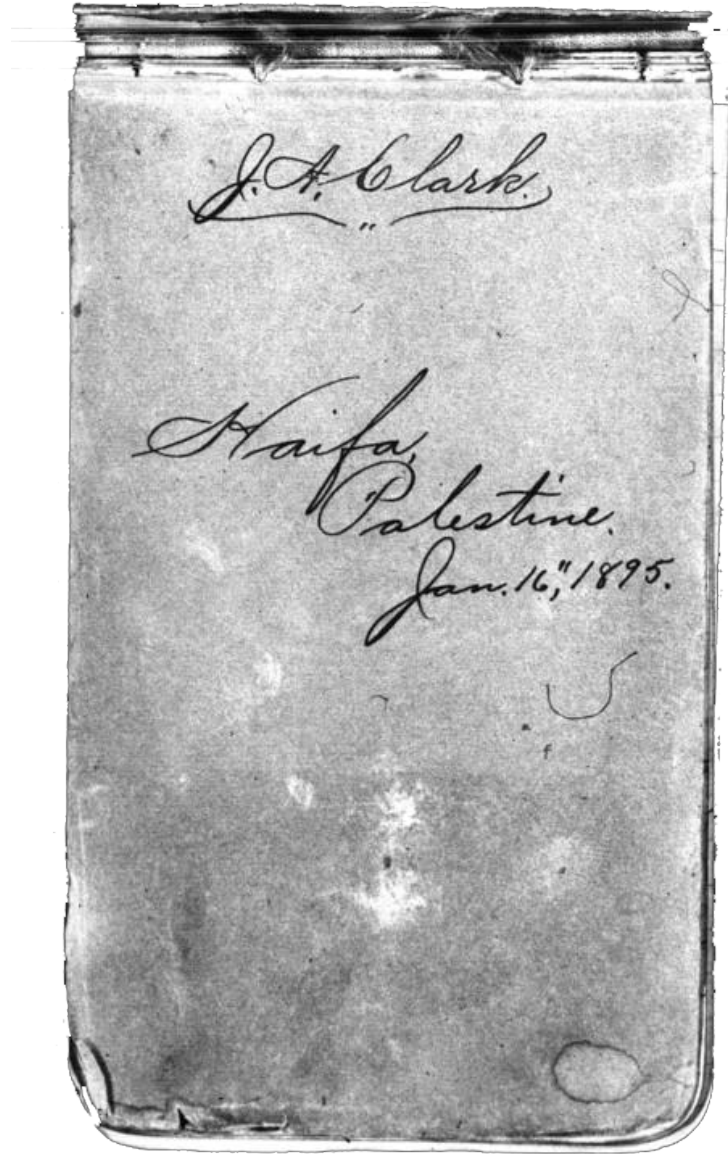 J. A. Clark.
Haifa,
Palestine.
Jan. 16", 1895.